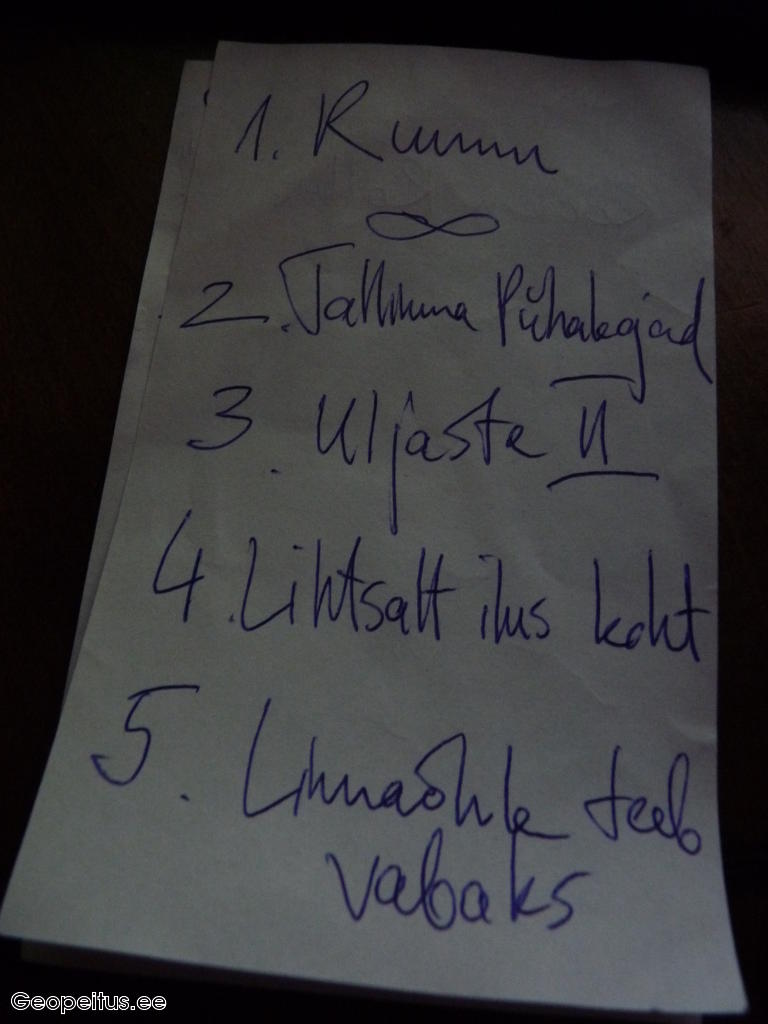 1. Rummu
∞
2. Tallinna Pühakojad
3. Uljaste II
4. Lihtsalt ilus koht
5. Linnaõhk teeb
vabaks
Geopeitus.ee